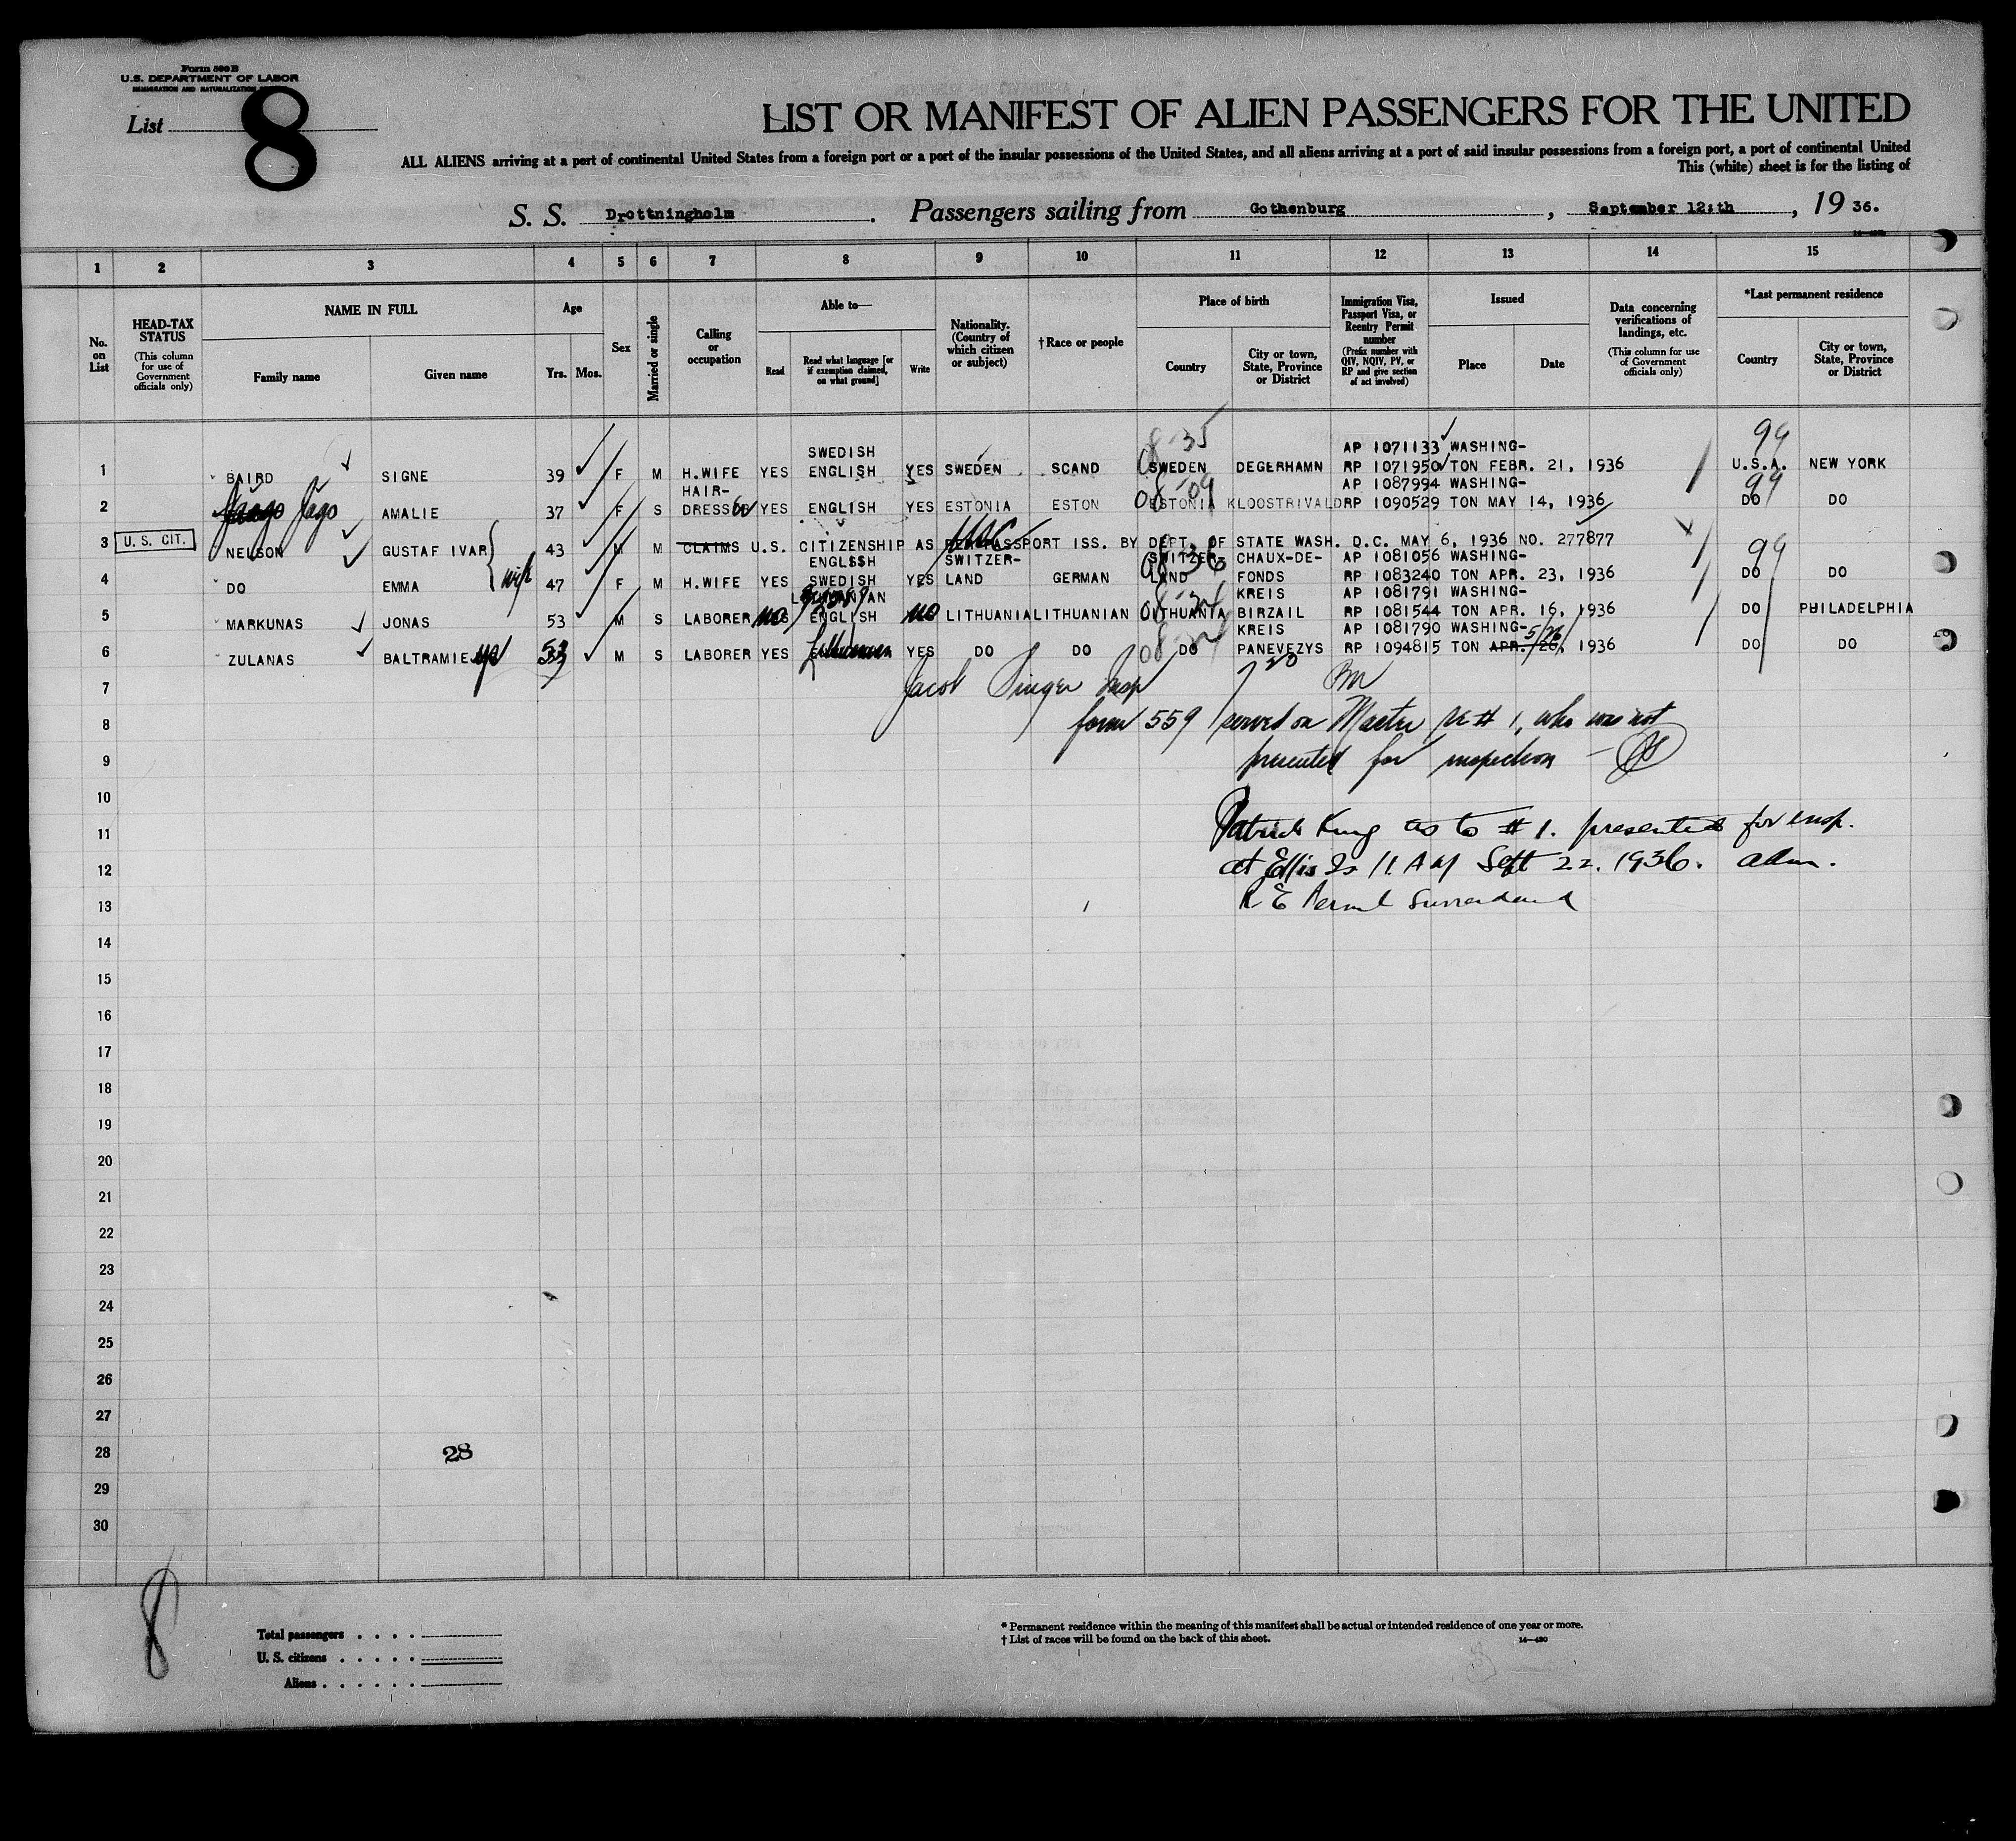 Form 500 B
U.S. DEPARTMENT OF LABOR
IMMIGRATION AND NATURALIZATION
List 8
LIST OR MANIFEST OF ALIEN PASSENGERS FOR THE UNITED
ALL ALIENS arriving at a port of continental United States from a foreign port or a port of the insular possessions of the United States, and all aliens arriving at a port of said insular possessions from a foreign port, a port of continental United
This (white) sheet is for the listing of
S. S. Drottningholm. Passengers sailing from Gothenburg, September 12:th, 19 36.
1 2 3 4 5 6 7 8 9 10 11 12 13 14 15
No. on List
HEAD-TAX STATUS (This column for use of Government officials only)
NAME IN FULL
Family name
Given name
Age
Yrs. Mos.
Sex
Married or single
Calling or occupation
Able to—
Read
Read what language [or if exemption claimed, on what ground]
Write
Nationality. (Country of which citizen or subject)
†Race or people
Place of birth
Country
City or town, State, Province or District
Immigration Visa, Passport Visa, or Reentry Permit number (Prefix number with QIV, NQIV, PV, or RP and give section of act involved)
Issued
Place
Date
Data concerning verifications of landings, etc. (This column for use of Government officials only)
*Last permanent residence
Country
City or town, State, Province or District
8-35 99
SWEDISH AP 1071133 WASHING-
1 BAIRD SIGNE 39 F M H.WIFE YES ENGLISH YES SWEDEN SCAND SWEDEN DEGERHAMN RP 1071950 TON FEBR. 21, 1936 U.S.A. NEW YORK
HAIR- 8-09 AP 1087994 WASHING- 99
2 Jägo AMALIE 37 F S DRESSER YES ENGLISH YES ESTONIA ESTON ESTONIA KLOOSTRIVALD RP 1090529 TON MAY 14, 1936 DO DO
3 U. S. CIT. NELSON GUSTAF IVAR 43 M M CLAIMS U.S. CITIZENSHIP AS PER PASSPORT ISS. BY DEPT. OF STATE WASH. D.C. MAY 6, 1936 NO. 277877
ENGLSSH SWITZER- SWITZER- CHAUX-DE- AP 1081056 WASHING- 99
4 DO EMMA wife 47 F M H.WIFE YES SWEDISH YES LAND GERMAN LAND FONDS RP 1083240 TON APR. 23, 1936 DO DO
KREIS AP 1081791 WASHING-
5 MARKUNAS JONAS 53 M S LABORER NO ENGLISH NO LITHUANIA LITHUANIAN LITHUANIA BIRZAIL RP 1081544 TON APR. 16, 1936 DO PHILADELPHIA
KREIS AP 1081790 WASHING- 5/26
6 ZULANAS BALTRAMIE 53 M S LABORER YES YES DO DO DO PANEVEZYS RP 1094815 TON APR. 26, 1936 DO DO
7 Jacob Singer Insp
8 form 559 served on Master re # 1, who was not
9 presented for inspection — JS
10
11 Patrick King as to # 1. presented for insp.
12 at Ellis Is 11 AM Sept 22. 1936. adm.
13 R E Permit Surrendered
14
15
16
17
18
19
20
21
22
23
24
25
26
27
28 28
29
30
8
Total passengers . . . .
U. S. citizens . . . . .
Aliens . . . . . .
* Permanent residence within the meaning of this manifest shall be actual or intended residence of one year or more.
† List of races will be found on the back of this sheet.
14—430